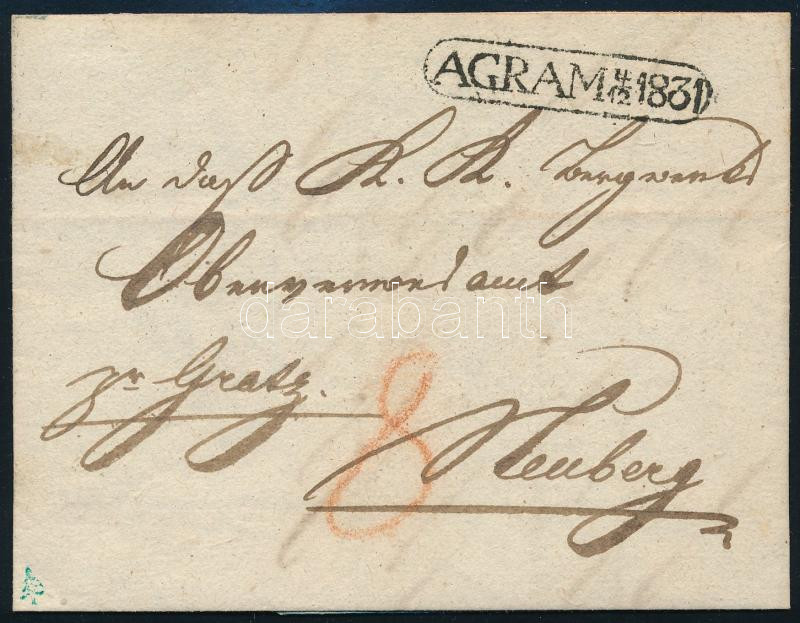 AGRAM 4/12 1831
An daß K. K. Bergwerks
Oberverwesamt
pr Gratz.
8
Neuberg
darabanth